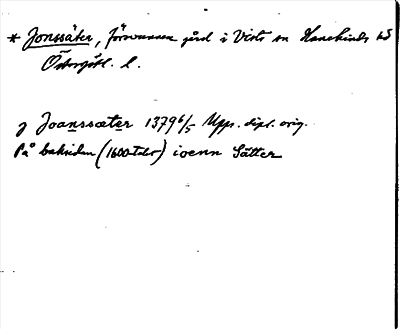 * Jonssäter, försvunnen gård i Vists sn Hanekinds hd
Östergötl. l.
J Joanssæter 1379 6/5 Upps. dipl. orig.
På baksidan (1600-talet) ioenn Sätter